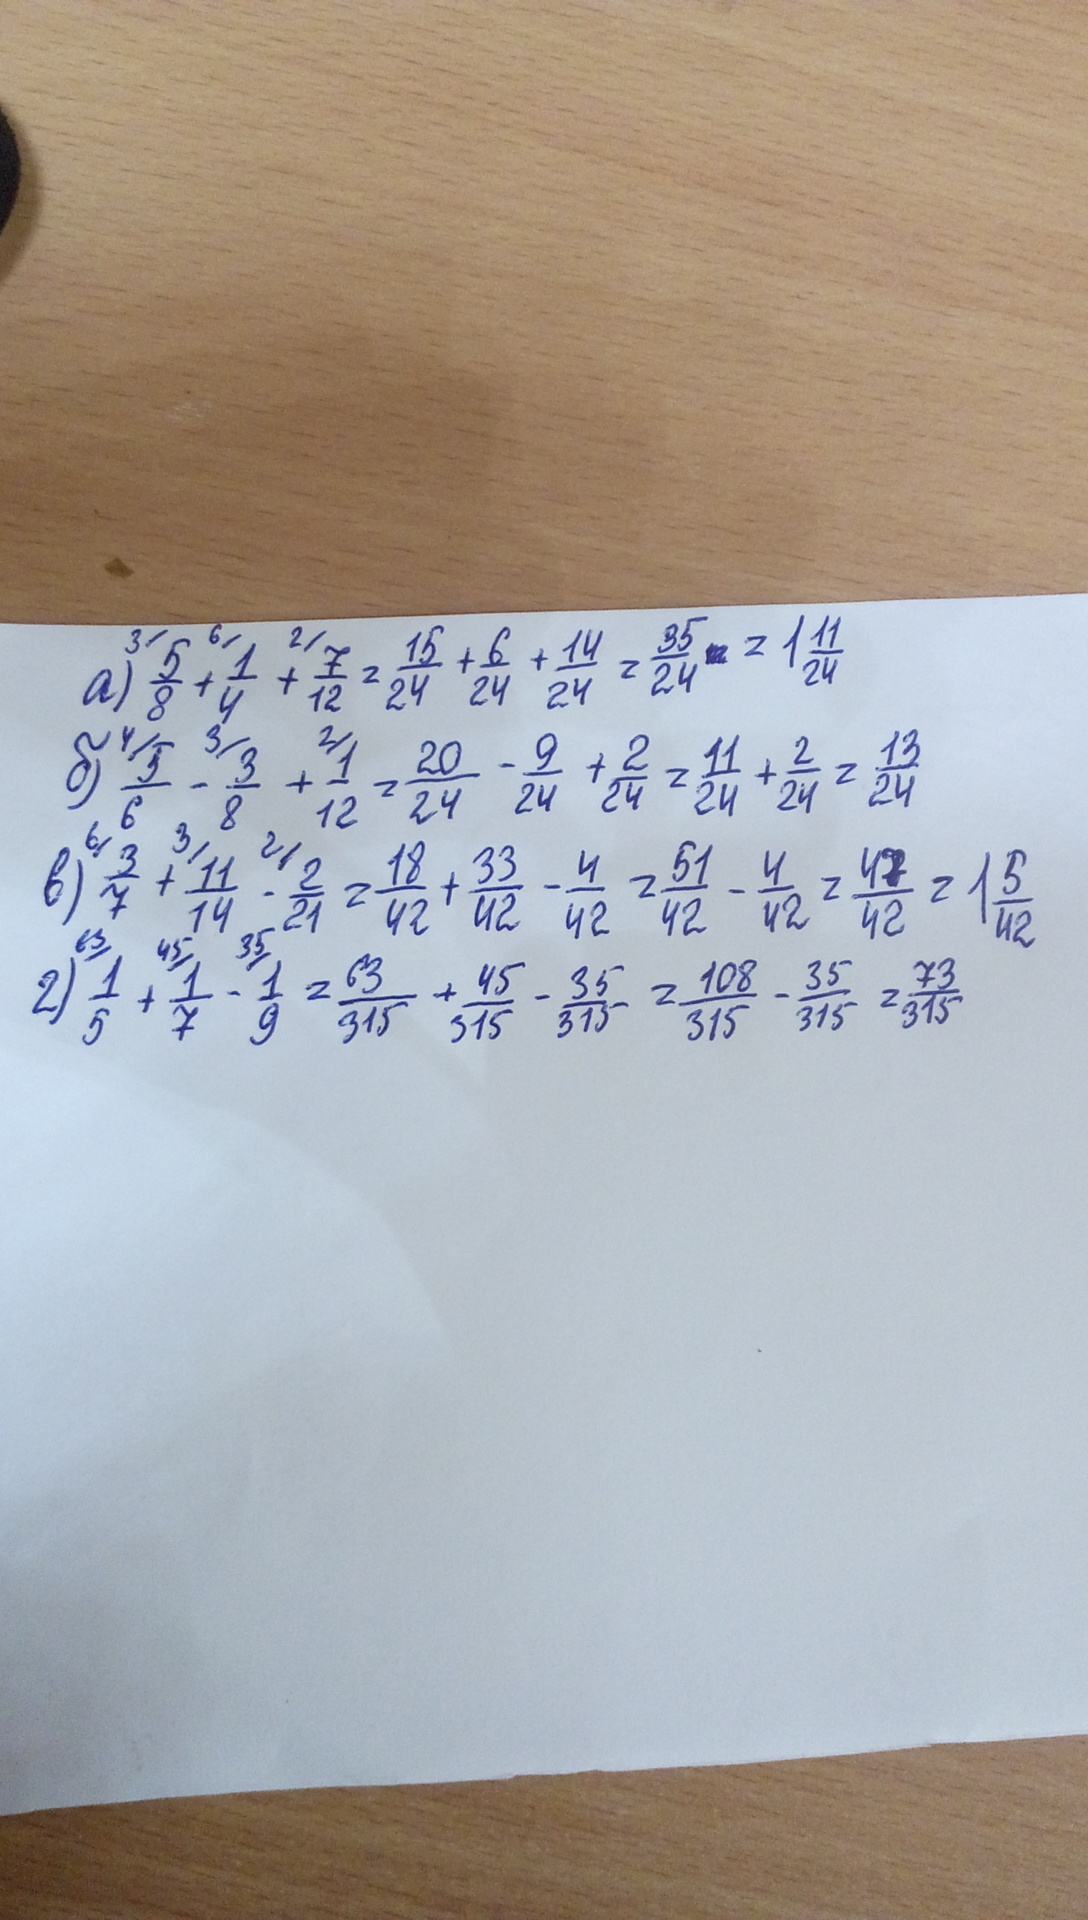 а) 3/ 5/8 + 6/ 1/4 + 2/ 7/12 = 15/24 + 6/24 + 14/24 = 35/24 = 1 11/24
б) 4/ 5/6 - 3/ 3/8 + 2/ 1/12 = 20/24 - 9/24 + 2/24 = 11/24 + 2/24 = 13/24
в) 6/ 3/7 + 3/ 11/14 - 2/ 2/21 = 18/42 + 33/42 - 4/42 = 51/42 - 4/42 = 47/42 = 1 5/42
г) 63/ 1/5 + 45/ 1/7 - 35/ 1/9 = 63/315 + 45/315 - 35/315 = 108/315 - 35/315 = 73/315